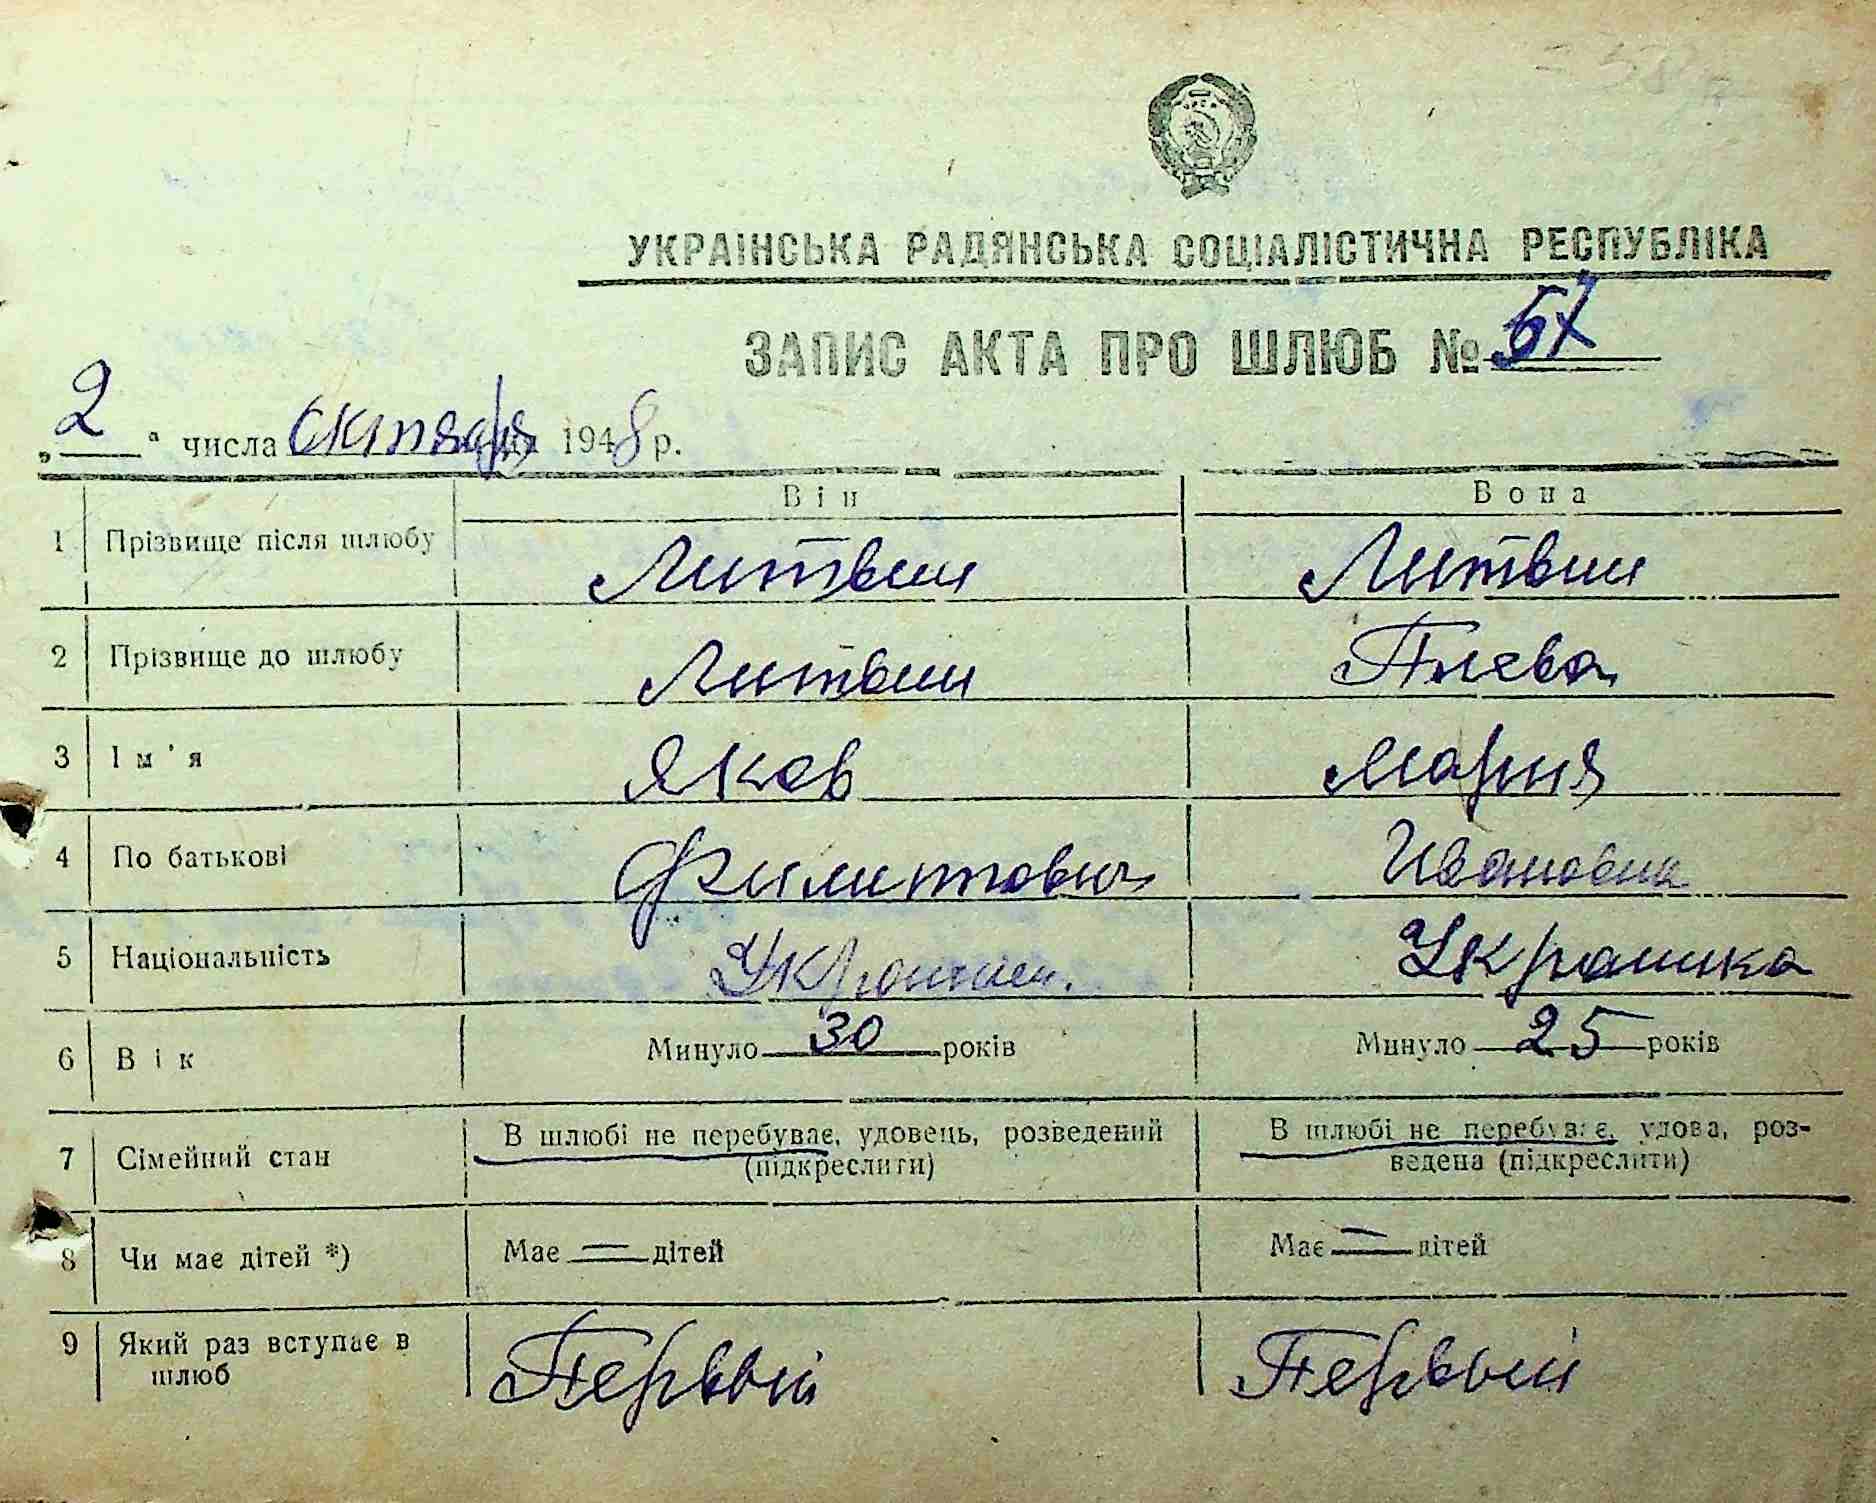 УКРАІНСЬКА РАДЯНСЬКА СОЦІАЛІСТИЧНА РЕСПУБЛІКА
ЗАПИС АКТА ПРО ШЛЮБ № 57
„2“ числа октября 1948 р.
Він Вона
1 Прізвище після шлюбу Литвин Литвин
2 Прізвище до шлюбу Литвин
3 Ім'я Яков Мария
4 По батькові Филиппович Ивановна
5 Національність Украинец. Украинка
6 Вік Минуло 30 років Минуло 25 років
7 Сімейний стан В шлюбі не перебуває, удовець, розведений (підкреслити) В шлюбі не перебуває, удова, роз-
ведена (підкреслити)
8 Чи має дітей *) Має — дітей Має — дітей
9 Який раз вступає в шлюб Первый Первый